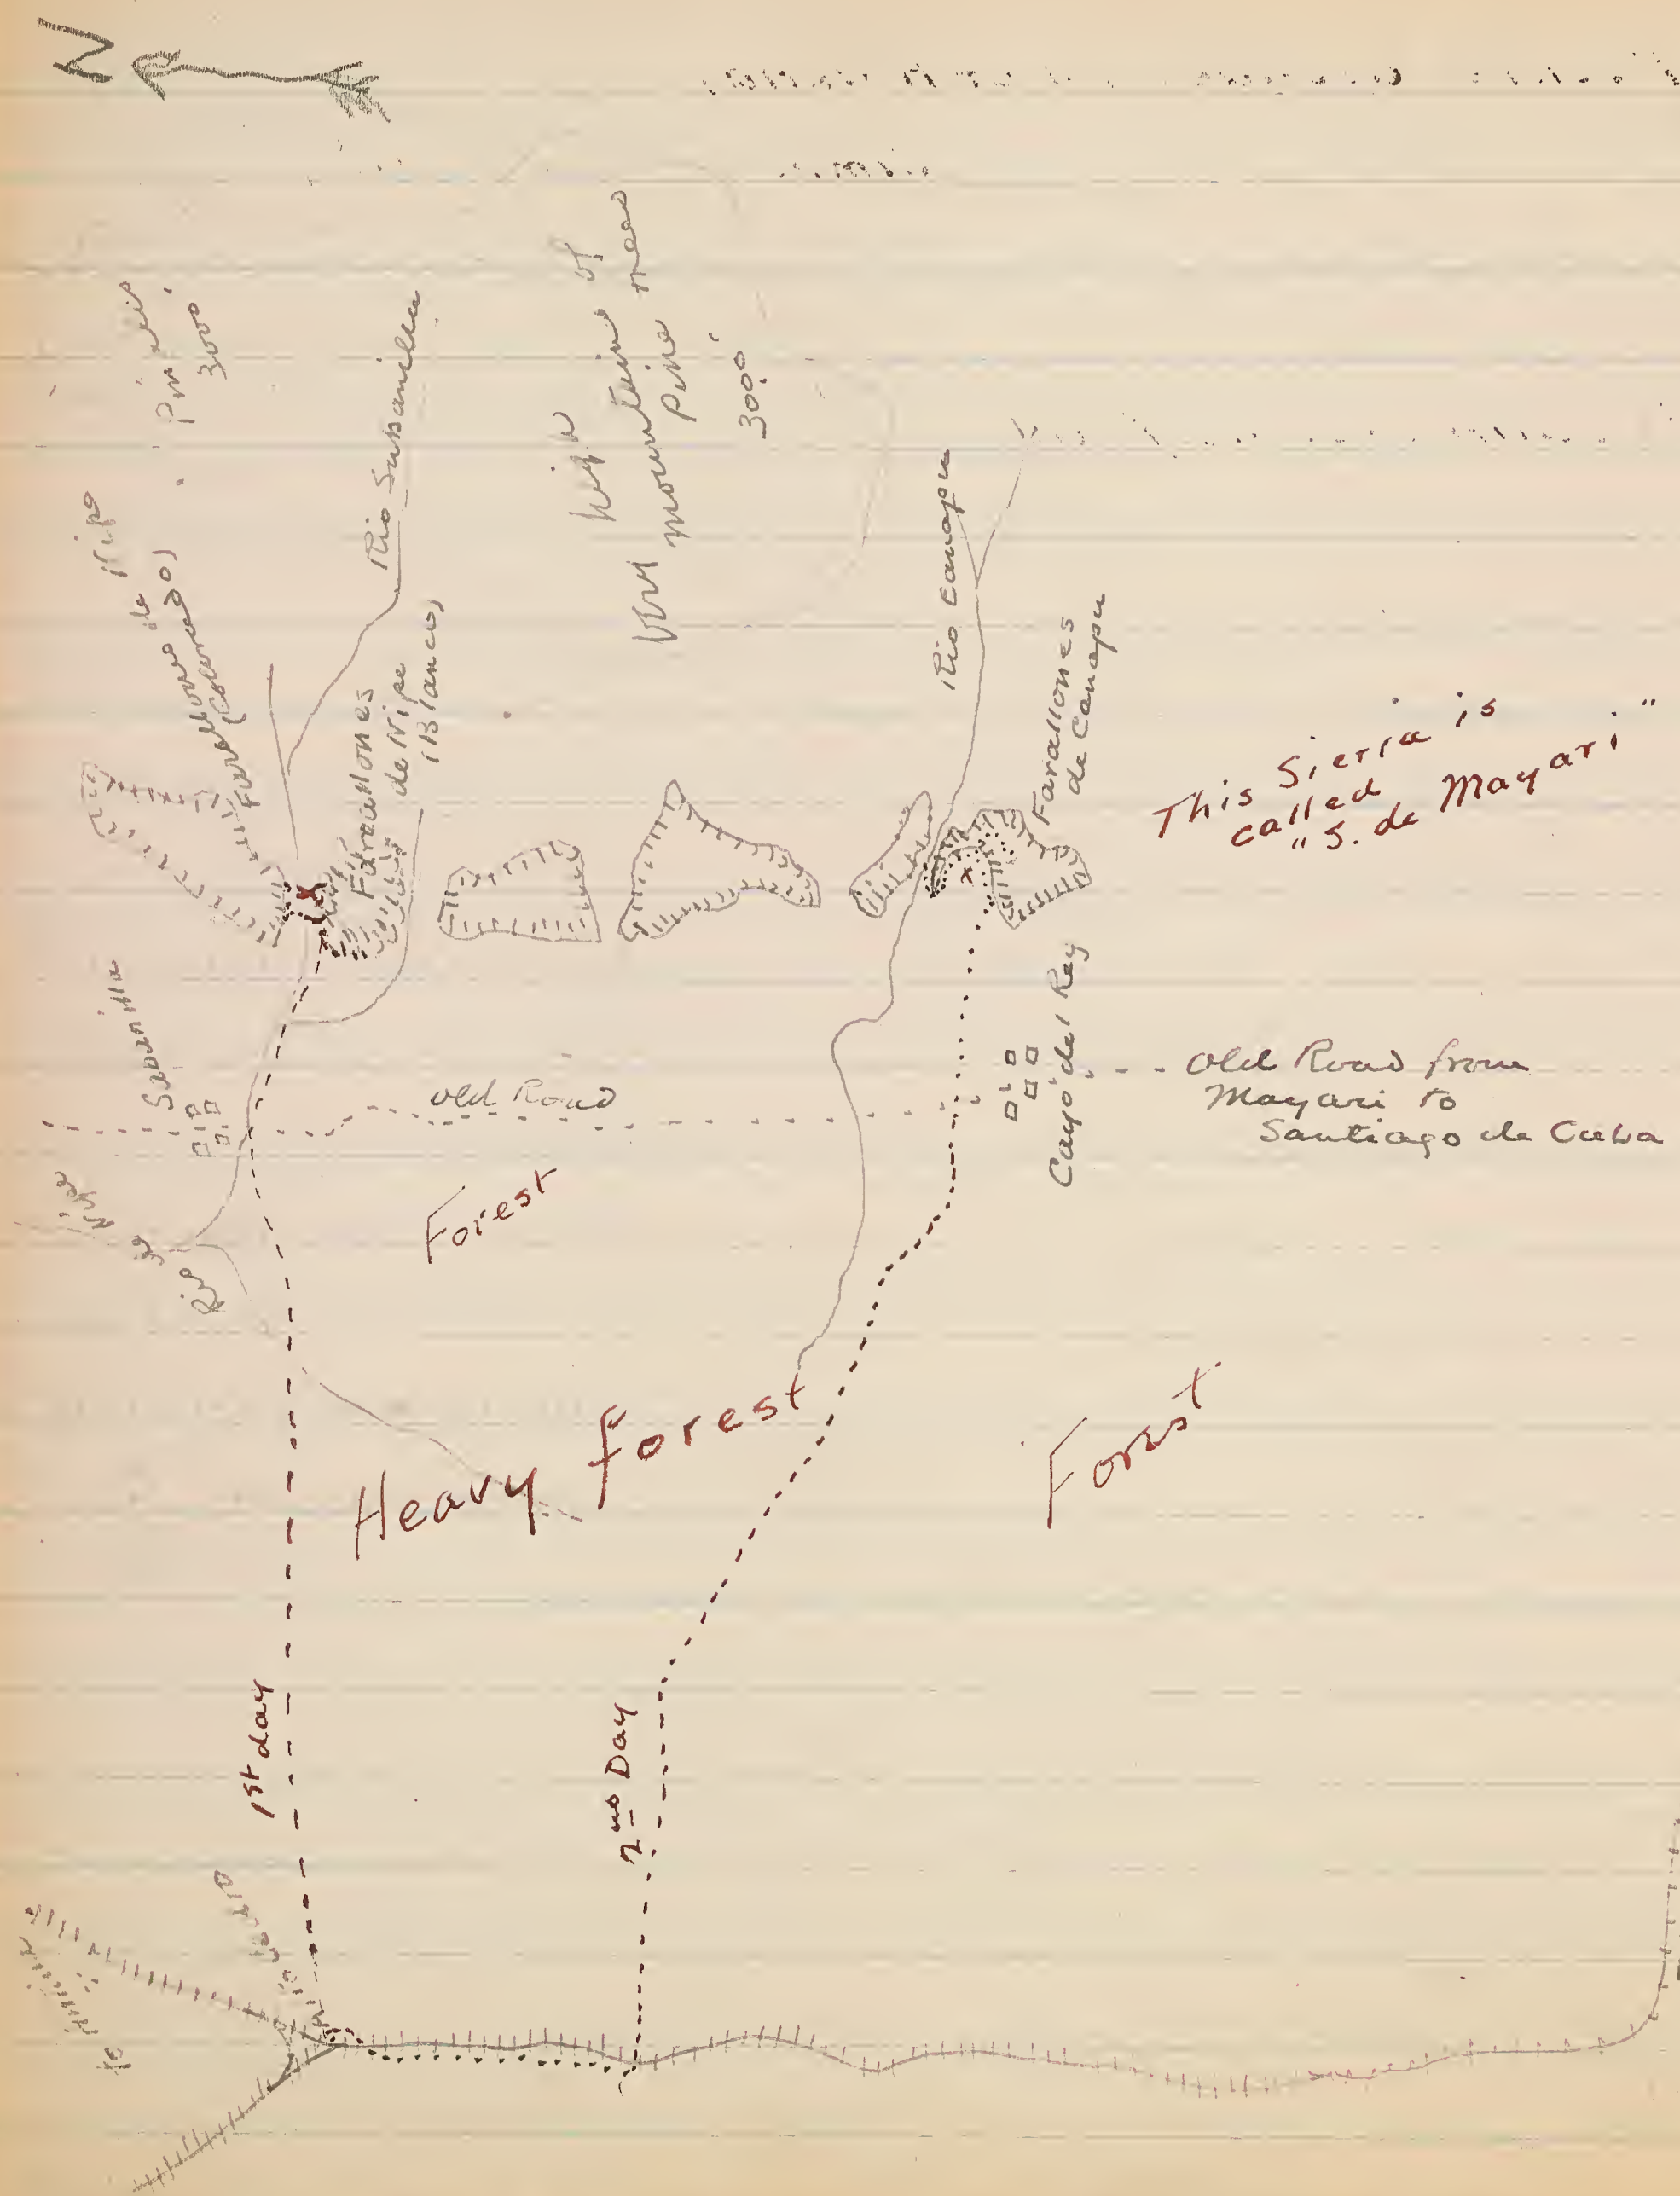 N
Pinales
3000'
Rio Sabanilla
Very high
mountains of
pine trees
3000'
Rio Canapu
Farallones de Nipe
(Colorados)
Farallones
de Nipe
(Blancos)
Farallones
de Canapu
This Sierra is
called
"S. de Mayari"
Sabanilla
Cayo del Rey
Old Road
Old Road from
Mayari to
Santiago de Cuba
Rio de Nipe
Forest
Heavy Forest
Forest
1st day
2nd Day